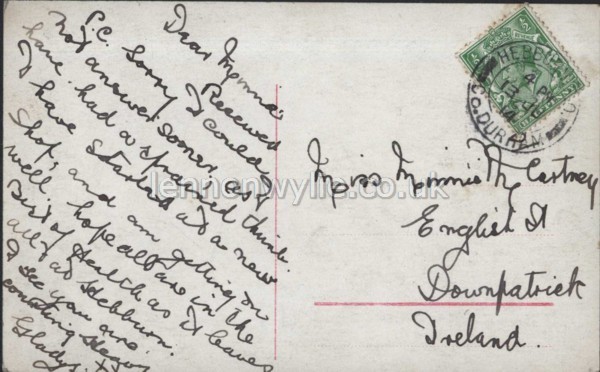 Dear Minnie
Received
P.C. Sorry I could
not answer sooner, as I
have had a sprained thumb.
I have started at a new
shop, and am getting on
well. I hope all are in the
Best of Health as it leaves
all at Hebburn.
I see you are
Gladys. XX
HEBBURN
4 PM
CO. DURHAM
Miss Minnie Mc Cartney
English St
Downpatrick
Ireland.
lennonwylie.co.uk